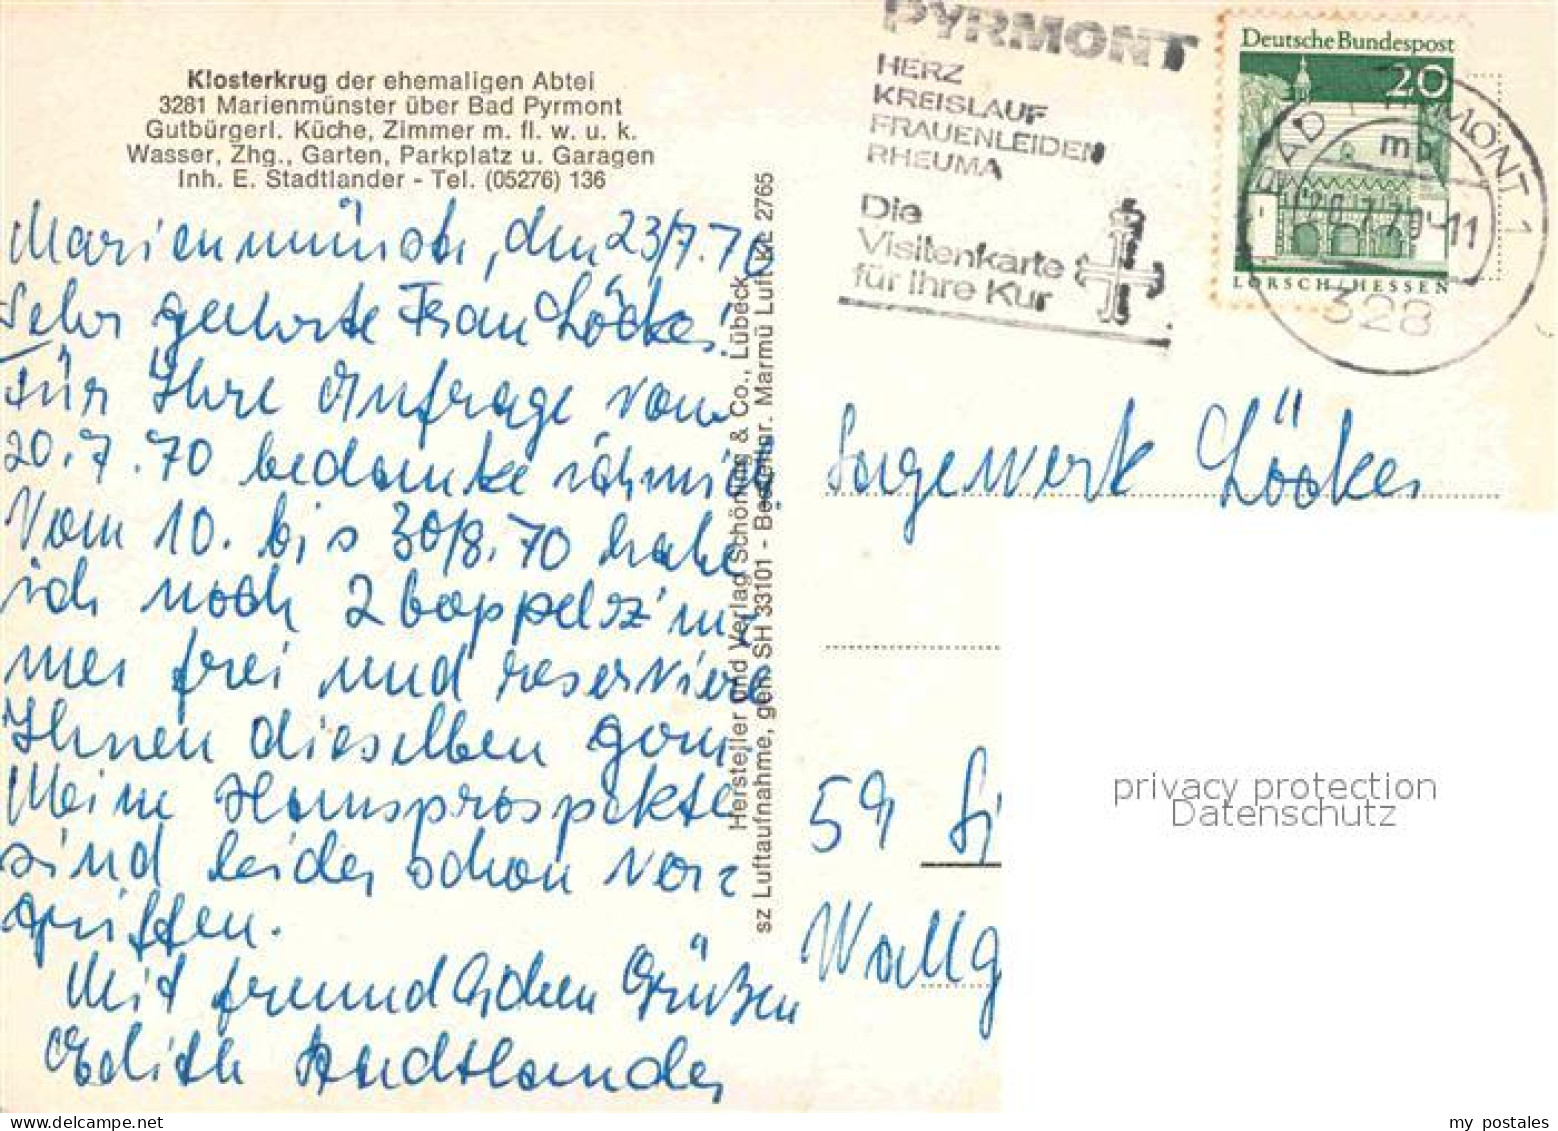 Klosterkrug der ehemaligen Abtei
3281 Marienmünster über Bad Pyrmont
Gutbürgerl. Küche, Zimmer m. fl. w. u. k.
Wasser, Zhg., Garten, Parkplatz u. Garagen
Inh. E. Stadtlander - Tel. (05276) 136
Marienmünster, den 23/7.70
Sehr geehrte Frau Löcker!
Für Ihre Anfrage vom
20.7.70 bedanke ich mich
Vom 10. bis 30/8.70 habe
ich noch 2 Doppelzim=
mer frei und reserviere
Ihnen dieselben gern.
Meine Hausprospekte
sind leider schon ver=
griffen.
Mit freundlichen Grüßen
Edith Stadtlander
Hersteller und Verlag Schöning & Co., Lübeck
sz Luftaufnahme, gen. SH 33101 - Bestellnr. Marmü Luft KL 2765
PYRMONT
HERZ
KREISLAUF
FRAUENLEIDEN
RHEUMA
Die
Visitenkarte
für Ihre Kur
Deutsche Bundespost
20
LORSCH/HESSEN
BAD PYRMONT 1
mb
7.70-11
328
Sagewerk Löcker
59 Si
Wallg
privacy protection
Datenschutz
my postales